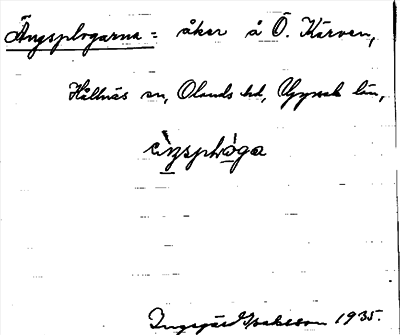 Ängsplogarna = åker å Ö. Kärven,
Hållnäs sn, Olands hd, Uppsala län,
ängsplωga
Ingegärd Isaksson 1935.